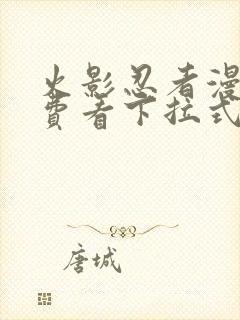 火影忍者漫
费看下拉式
唐城